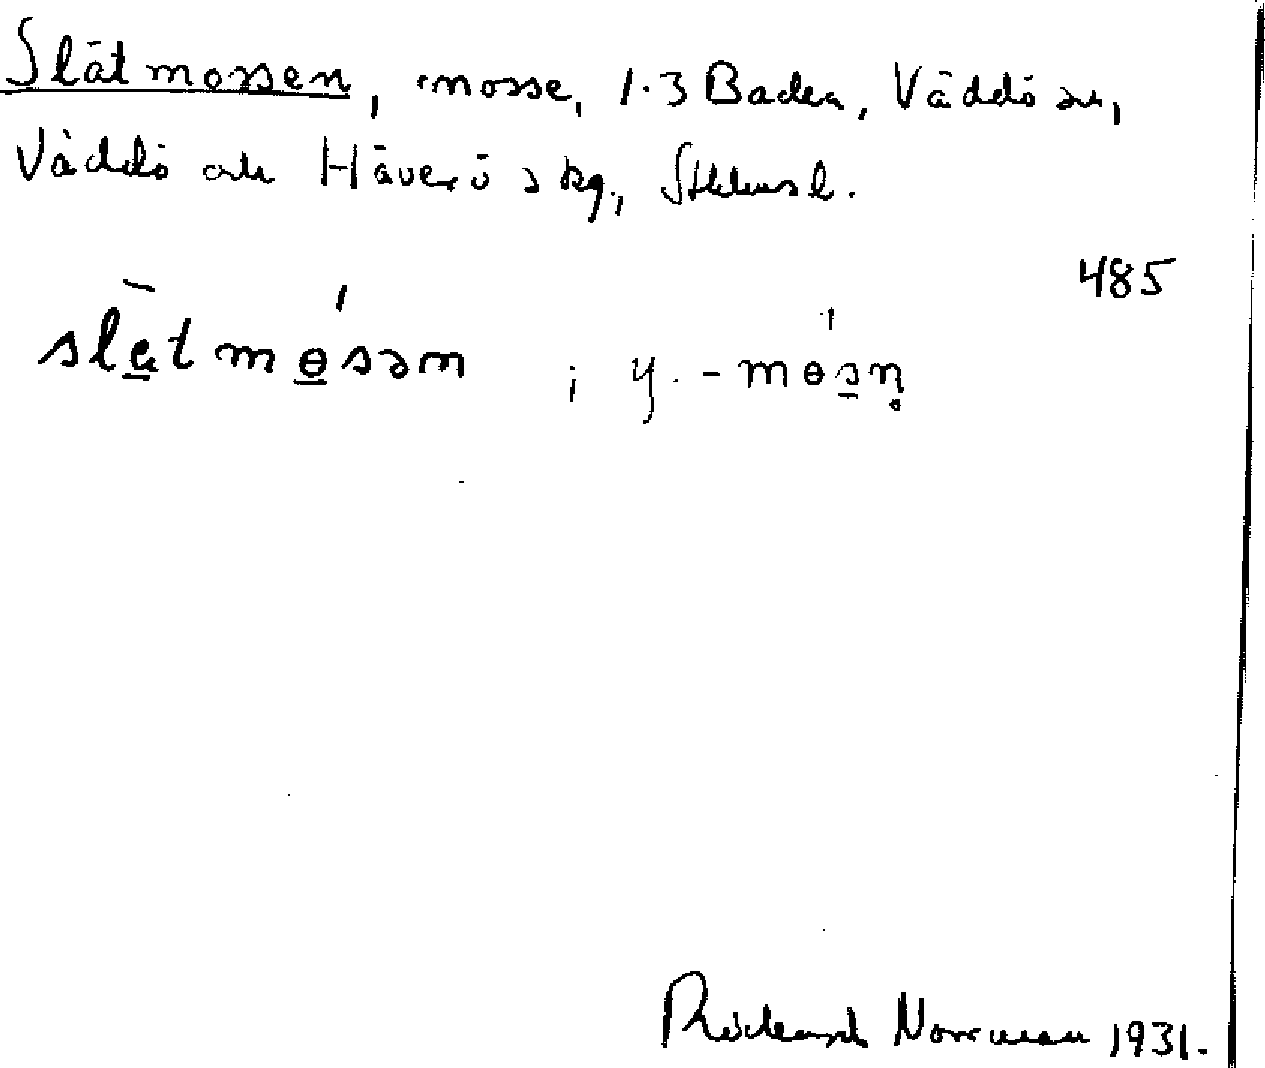 Slätmossen, mosse, 1.3 Baden, Väddö sn,
Väddö och Häverö skg., Sthlms l.
485
slätmɵsən ; y. -mɵsn̥
Richard Norrman 1931.